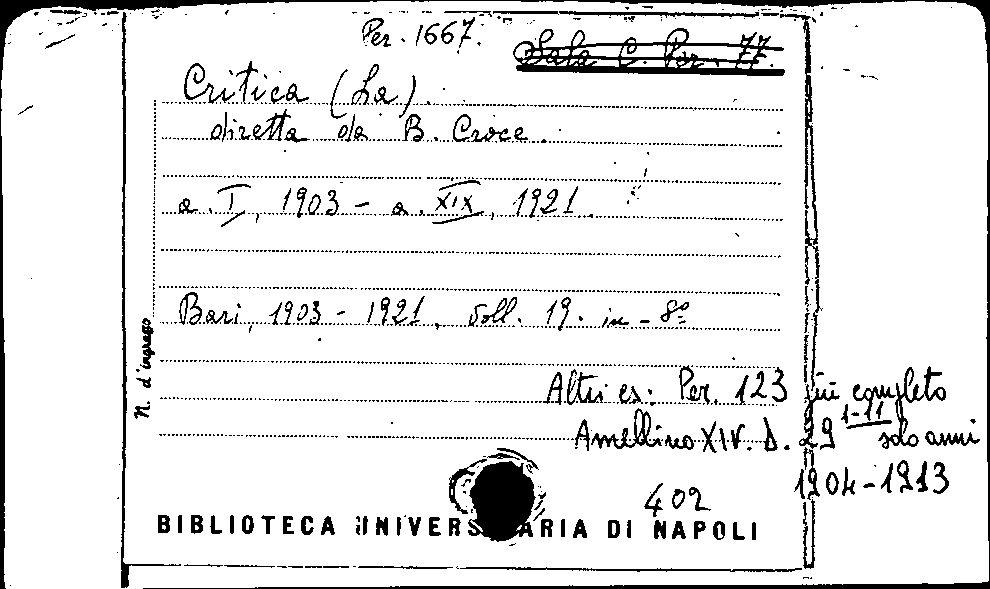 Per. 1667.
Sala C. Per. 77.
Critica (La).
diretta da B. Croce.
a. I, 1903 - a. XIX, 1921.
Bari, 1903 - 1921. Voll. 19. in - 8º
Altri es: Per. 123 più completo
Amellino XIV. D. 29 1-11 solo anni
1904-1913
402
N. d'ingresso
BIBLIOTECA UNIVERS ARIA DI NAPOLI